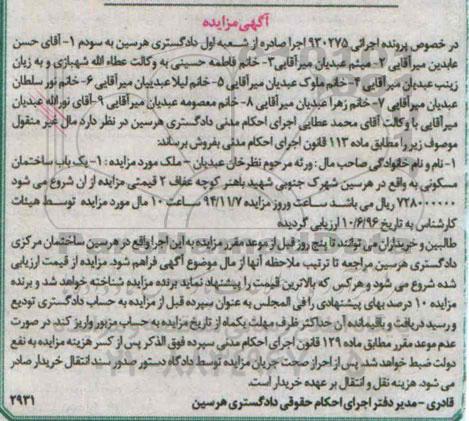 آگهی مزایده
در خصوص پرونده اجرائی ۹۳۰۲۷۵ اجرا صادره از شعبه اول دادگستری هرسین به سودم ۱- آقای حسن
عابدین میرآقایی ۲- میثم عبدیان میرآقایی ۳- خانم فاطمه حسینی به وکالت عطاء الله شهبازی و به زیان
زینب عبدیان میرآقایی ۴- خانم ملوک عبدیان میرآقایی ۵- خانم لیلا عبدیبان میرآقایی ۶- خانم نور سلطان
عبدیان میرآقایی ۷- خانم زهرا عبدیان میرآقایی ۸- خانم معصومه عبدیان میرآقایی ۹- آقای نورالله عبدیان
میرآقایی با وکالت آقای محمد عطایی اجرای احکام مدنی دادگستری هرسین در نظر دارد مال غیر منقول
موصوف زیر را مطابق ماده ۱۱۳ قانون اجرای احکام مدنی بفروش برساند:
۱- نام و نام خانوادگی صاحب مال: ورثه مرحوم نظرخان عبدیان - ملک مورد مزایده: ۱- یک باب ساختمان
مسکونی به واقع در هرسین شهرک جنوبی شهید باهنر کوچه عفاف ۲ قیمتی مزایده از ان شروع می شود
۷۲۸۰۰۰۰۰۰ ریال می باشد ساعت وروز مزایده ۹۴/۱۱/۷ ساعت ۱۰ مال مورد مزایده توسط هیئات
کارشناس به تاریخ ۱۰/۶/۹۶ ارزیابی گردیده
طالبین و خریداران می توانند تا پنج روز قبل از موعد مقرر مزایده به این اجرا واقع در هرسین ساختمان مرکزی
دادگستری هرسین مراجعه تا ترتیب ملاحظه آنها از مال موضوع آگهی فراهم شود. مزایده از قیمت ارزیابی
شده شروع می شود و هرکس که بالاترین قیمت را پیشنهاد نماید برنده مزایده شناخته خواهد شد و برنده
مزایده ۱۰ درصد بهای پیشنهادی را فی المجلس به عنوان سپرده قبل از مزایده به حساب دادگستری تودیع
و رسید دریافت و باقیمانده آن حداکثر ظرف مهلت یکماه از تاریخ مزایده به حساب مزبور واریز کند. در صورت
عدم موعد مقرر مطابق ماده ۱۲۹ قانون اجرای احکام مدنی سپرده فوق الذکر پس از کسر هزینه مزایده به نفع
دولت ضبط خواهد شد. پس از احراز صحت جریان مزایده توسط دادگاه دستور صدور سند انتقال خریدار صادر
می شود. هزینه نقل و انتقال بر عهده خریدار است.
قادری - مدیر دفتر اجرای احکام حقوقی دادگستری هرسین
۲۹۳۱